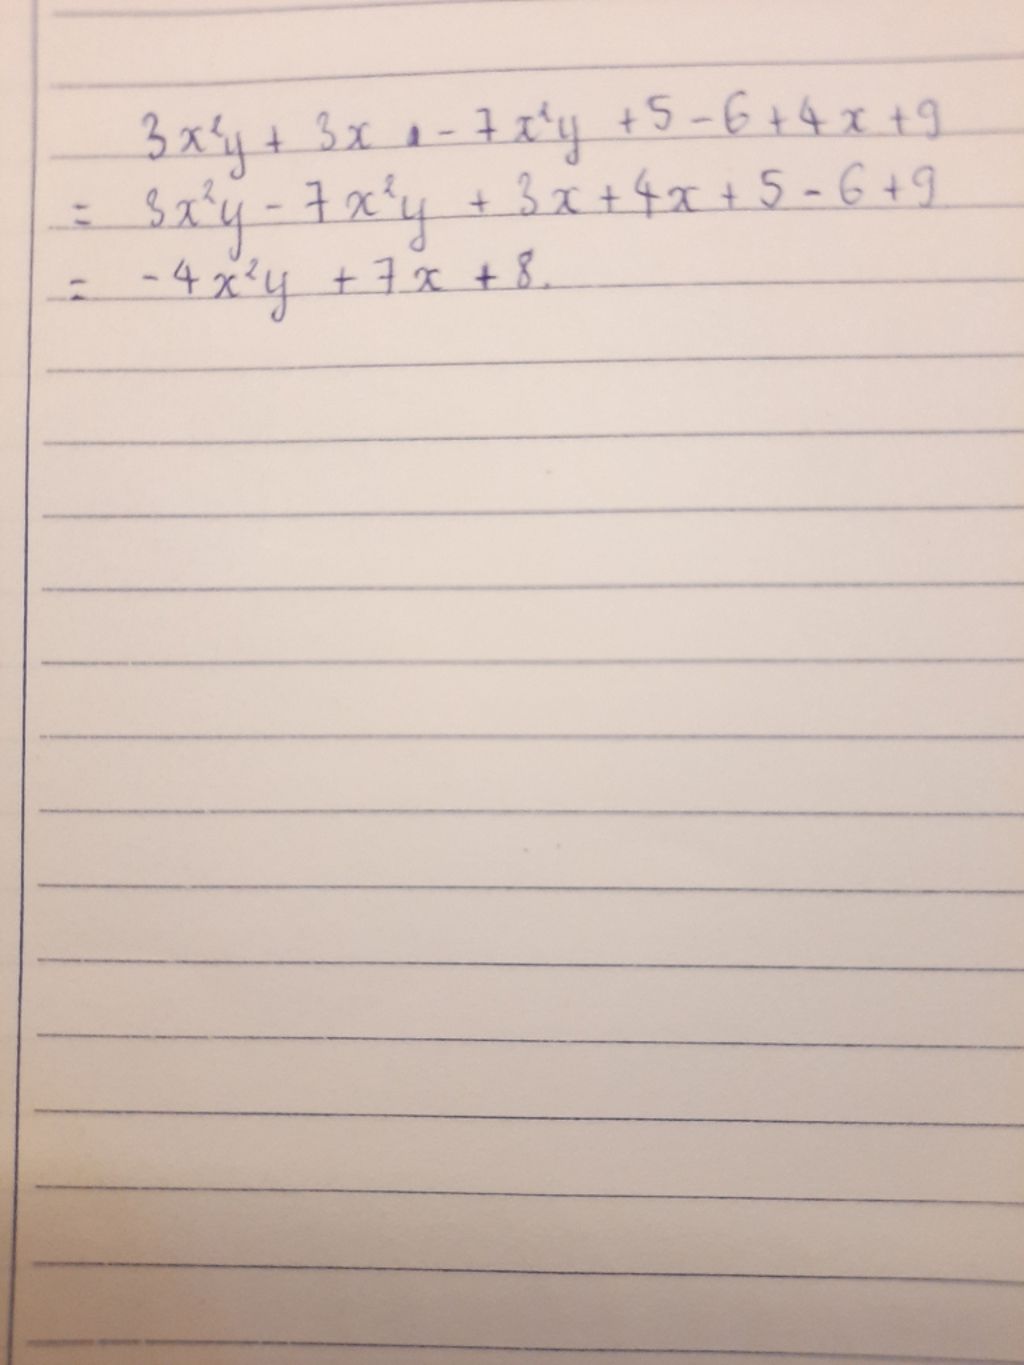 3x²y + 3x - 7x²y + 5 - 6 + 4x + 9
= 3x²y - 7x²y + 3x + 4x + 5 - 6 + 9
= -4x²y + 7x + 8.